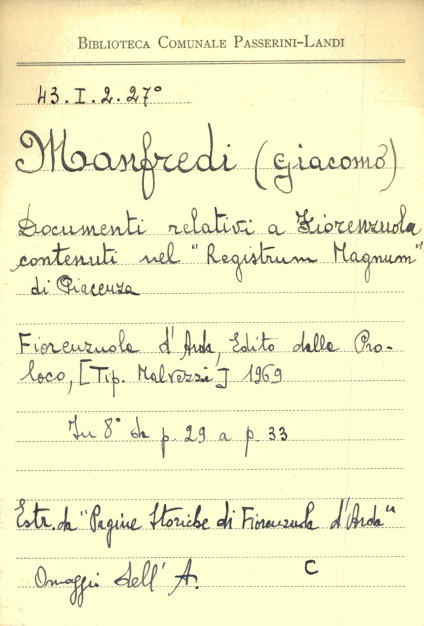 BIBLIOTECA COMUNALE PASSERINI-LANDI
43. I. 2. 27°
Manfredi (Giacomo)
Documenti relativi a Fiorenzuola
contenuti nel "Registrum Magnum"
di Piacenza
Fiorenzuola d'Arda, Edito dalla Pro-
loco, [Tip. Malvezzi] 1969
In 8° da p. 29 a p. 33
Estr. da "Pagine Storiche di Fiorenzuola d'Arda"
Omaggio dell'A.
C